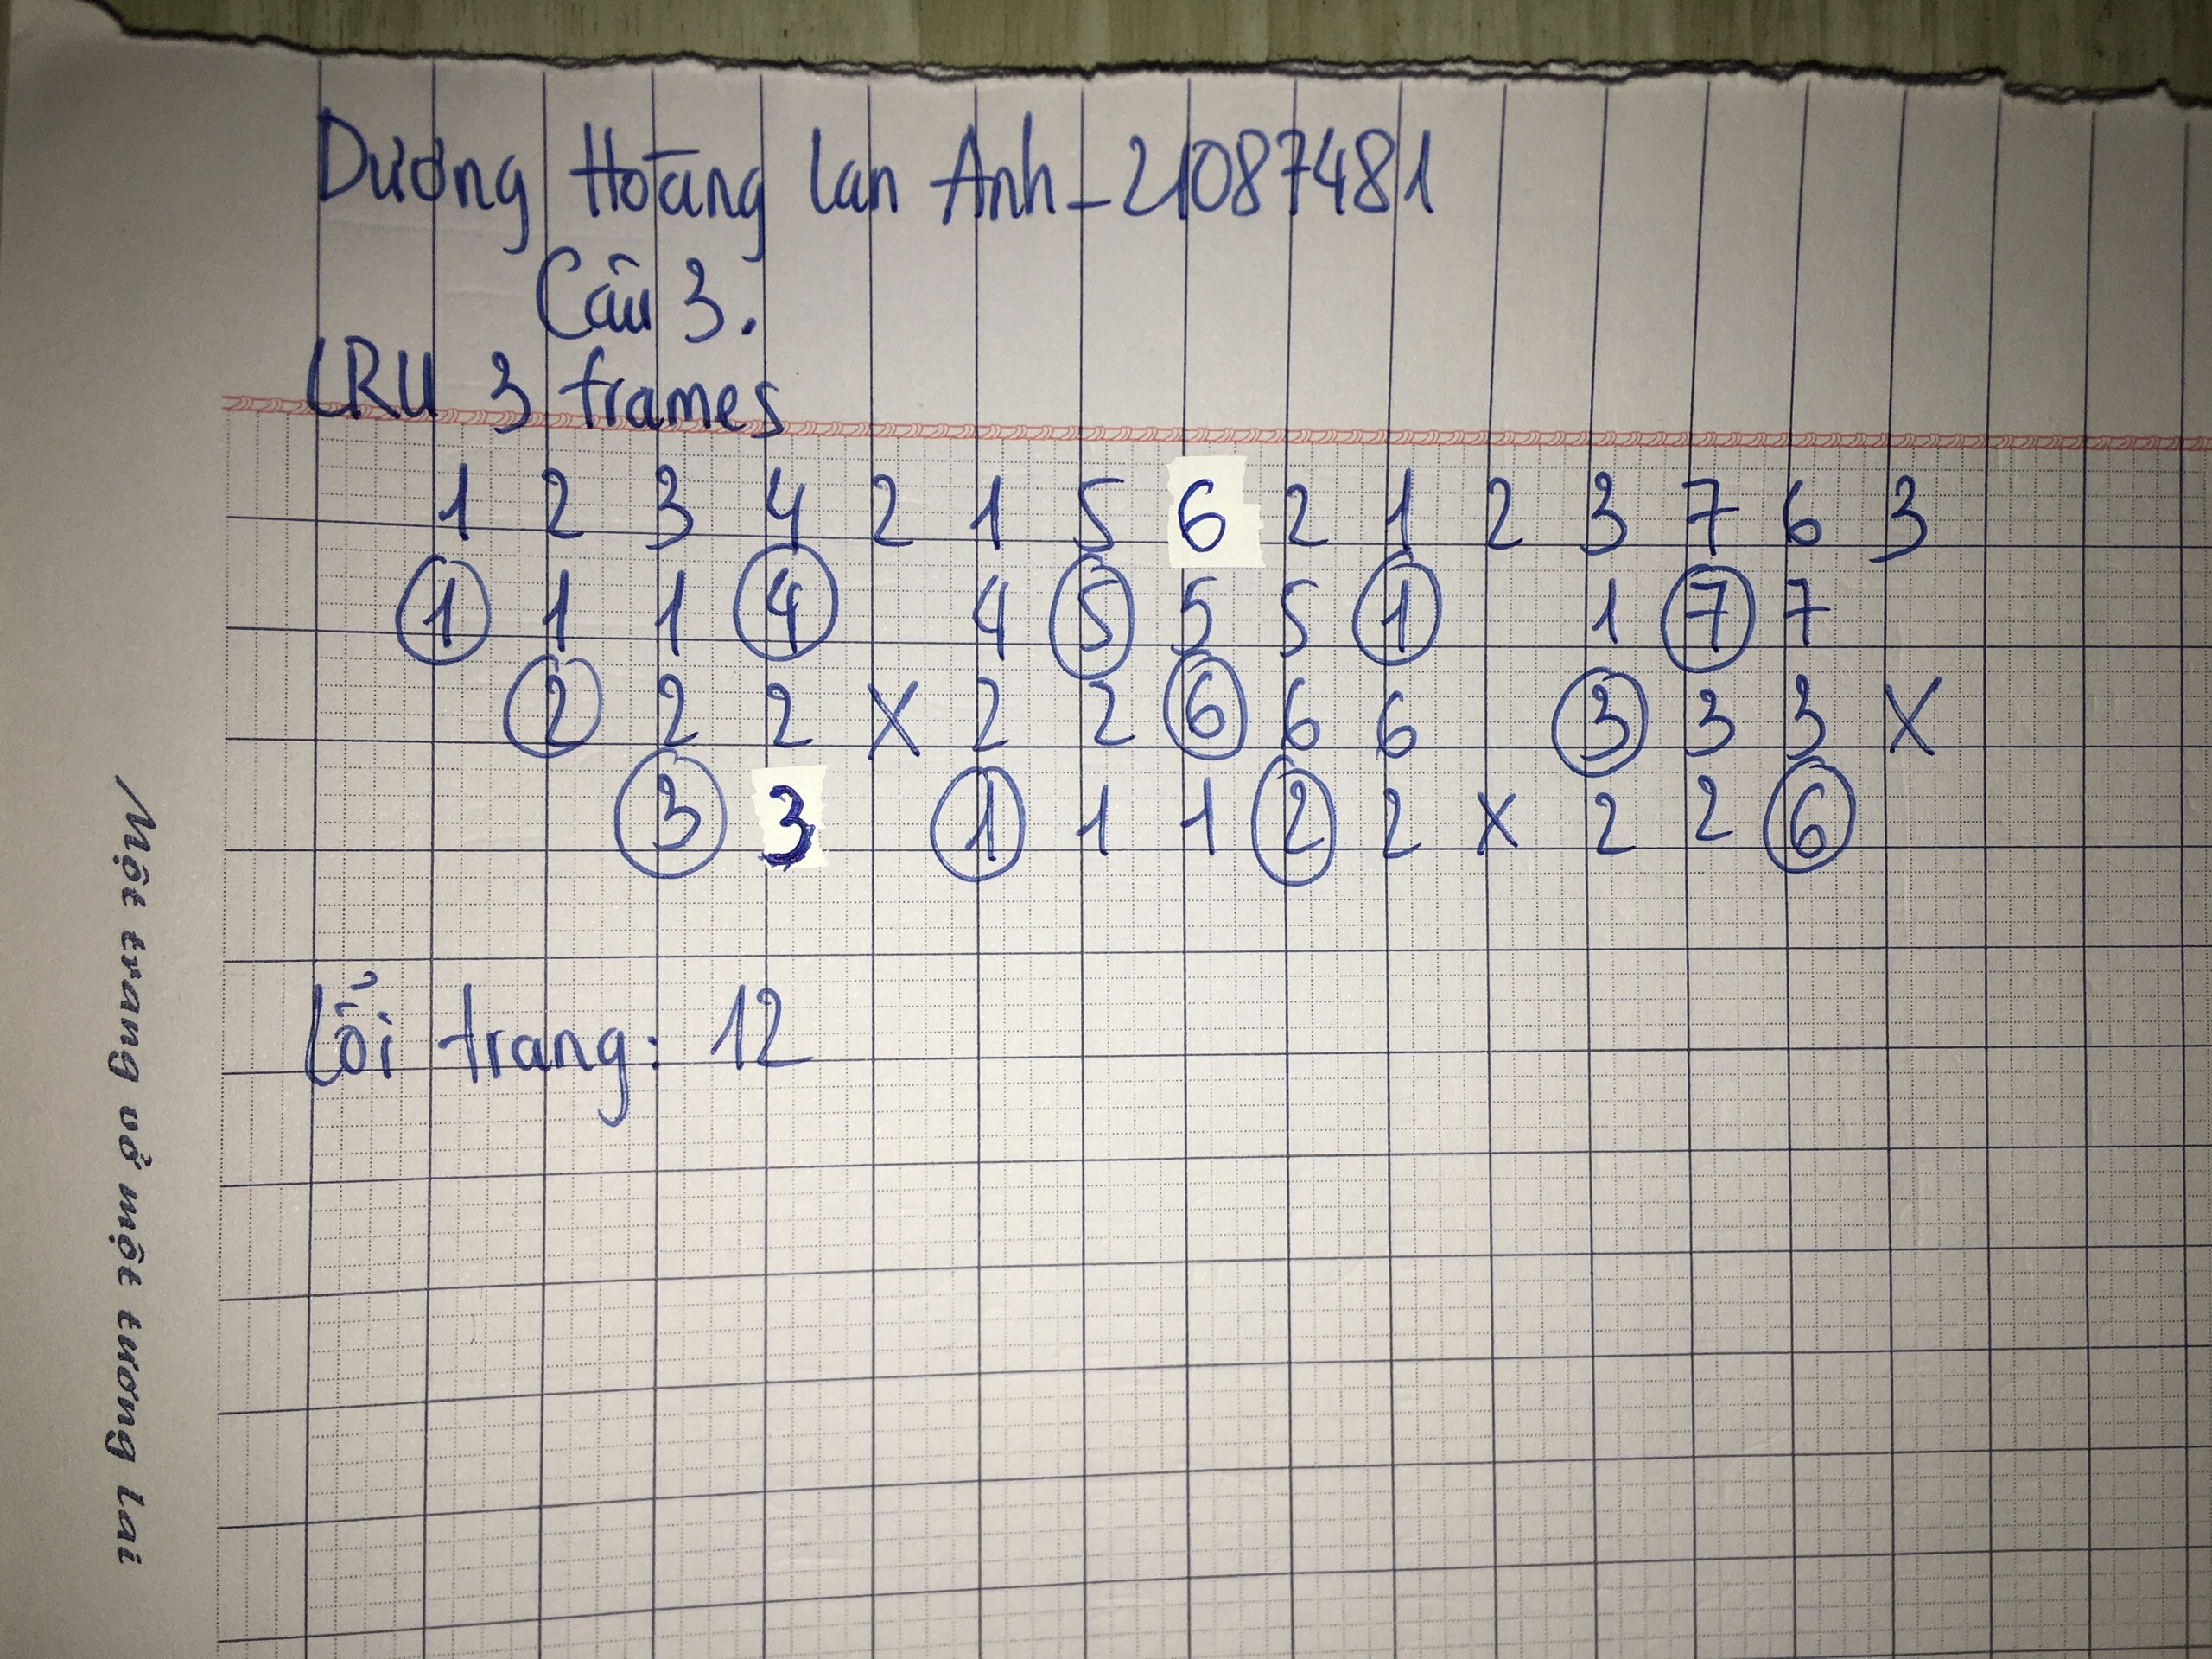 Dương Hoàng Lan Anh - 21087481
Câu 3.
LRU 3 frames
1 2 3 4 2 1 5 6 2 1 2 3 7 6 3
1 1 1 4 4 5 5 5 1 1 7 7
2 2 2 X 2 2 6 6 6 3 3 3 X
3 3 1 1 1 2 2 X 2 2 6
Lỗi trang: 12
Một trang vở một tương lai